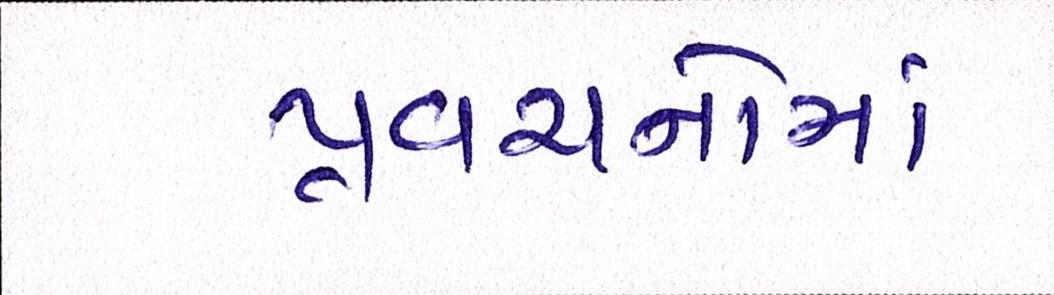 પ્રવચનોમાં